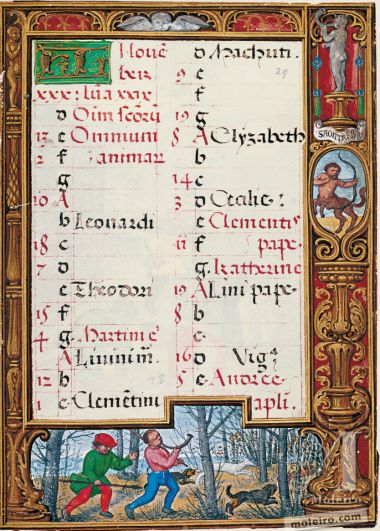 KL Nouē
bris
xxx: luā xxix
d Oīm scōrū
13 e Omnium
2 f animarr
g
10 A
b Leonardi
18 c
7 d
e Theodori
15 f
4 g Martini ē
A Liuini m̄.
12 b
1 c Clemētini
d Machuti.
9 e
f
19 g
8 A Elyzabeth
b
14 c
3 d Cecilie:
e Clementis
11 f pape.
g Katherine
19 A Lini pape.
8 b
c
16 d Vigᵃ
5 e Andree
apli.
29
28
SAGITARIUS
M
Moleiro
moleiro.com